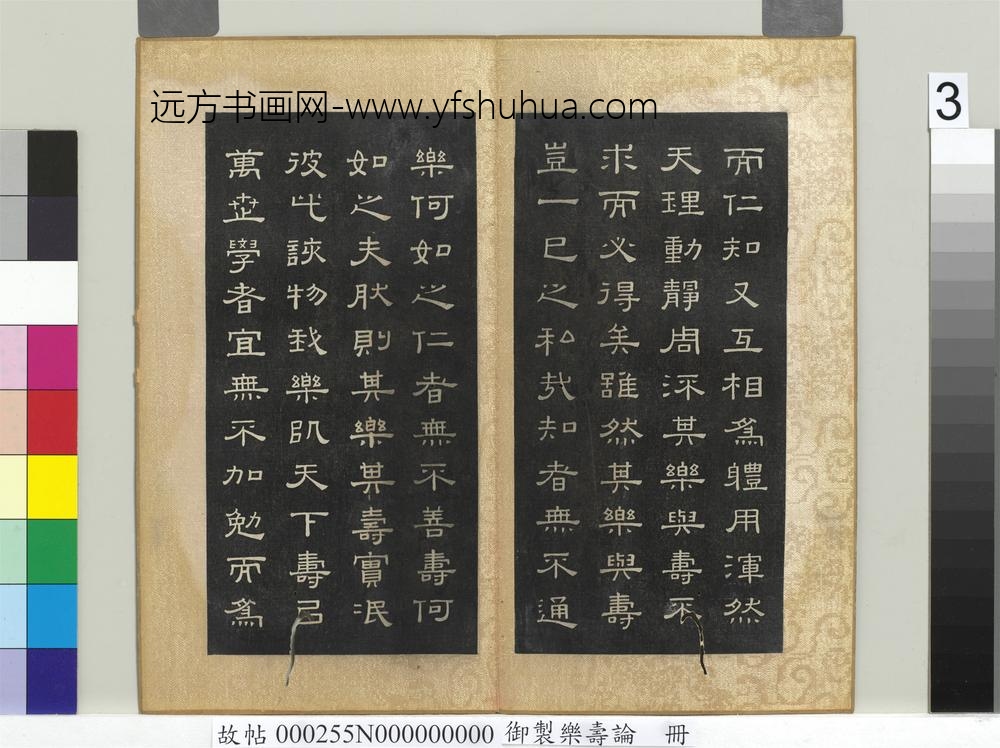 远方书画网-www.yfshuhua.com
3
而仁知又互相爲體用渾然
天理動靜周流其樂與壽不
求而必得矣雖然其樂與壽
豈一己之私哉知者無不通
樂何如之仁者無不善壽何
如之夫然則其樂其壽實泯
彼此該物我樂以天下壽以
萬世學者宜無不加勉而爲
故帖 000255N000000000 御製樂壽論 冊